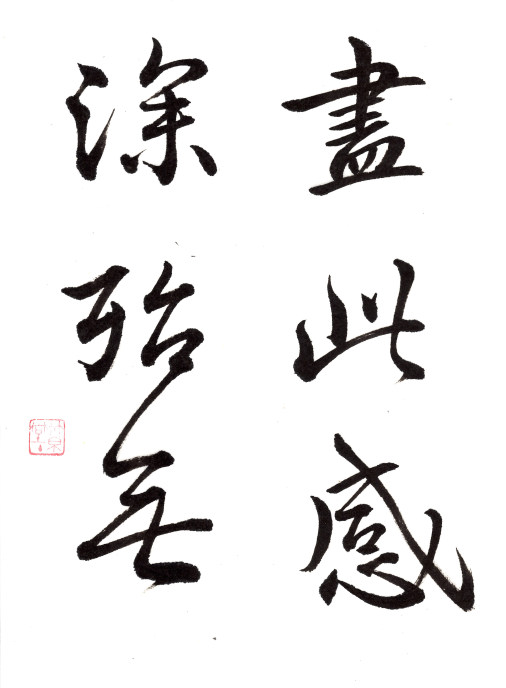 盡此感
深殆無